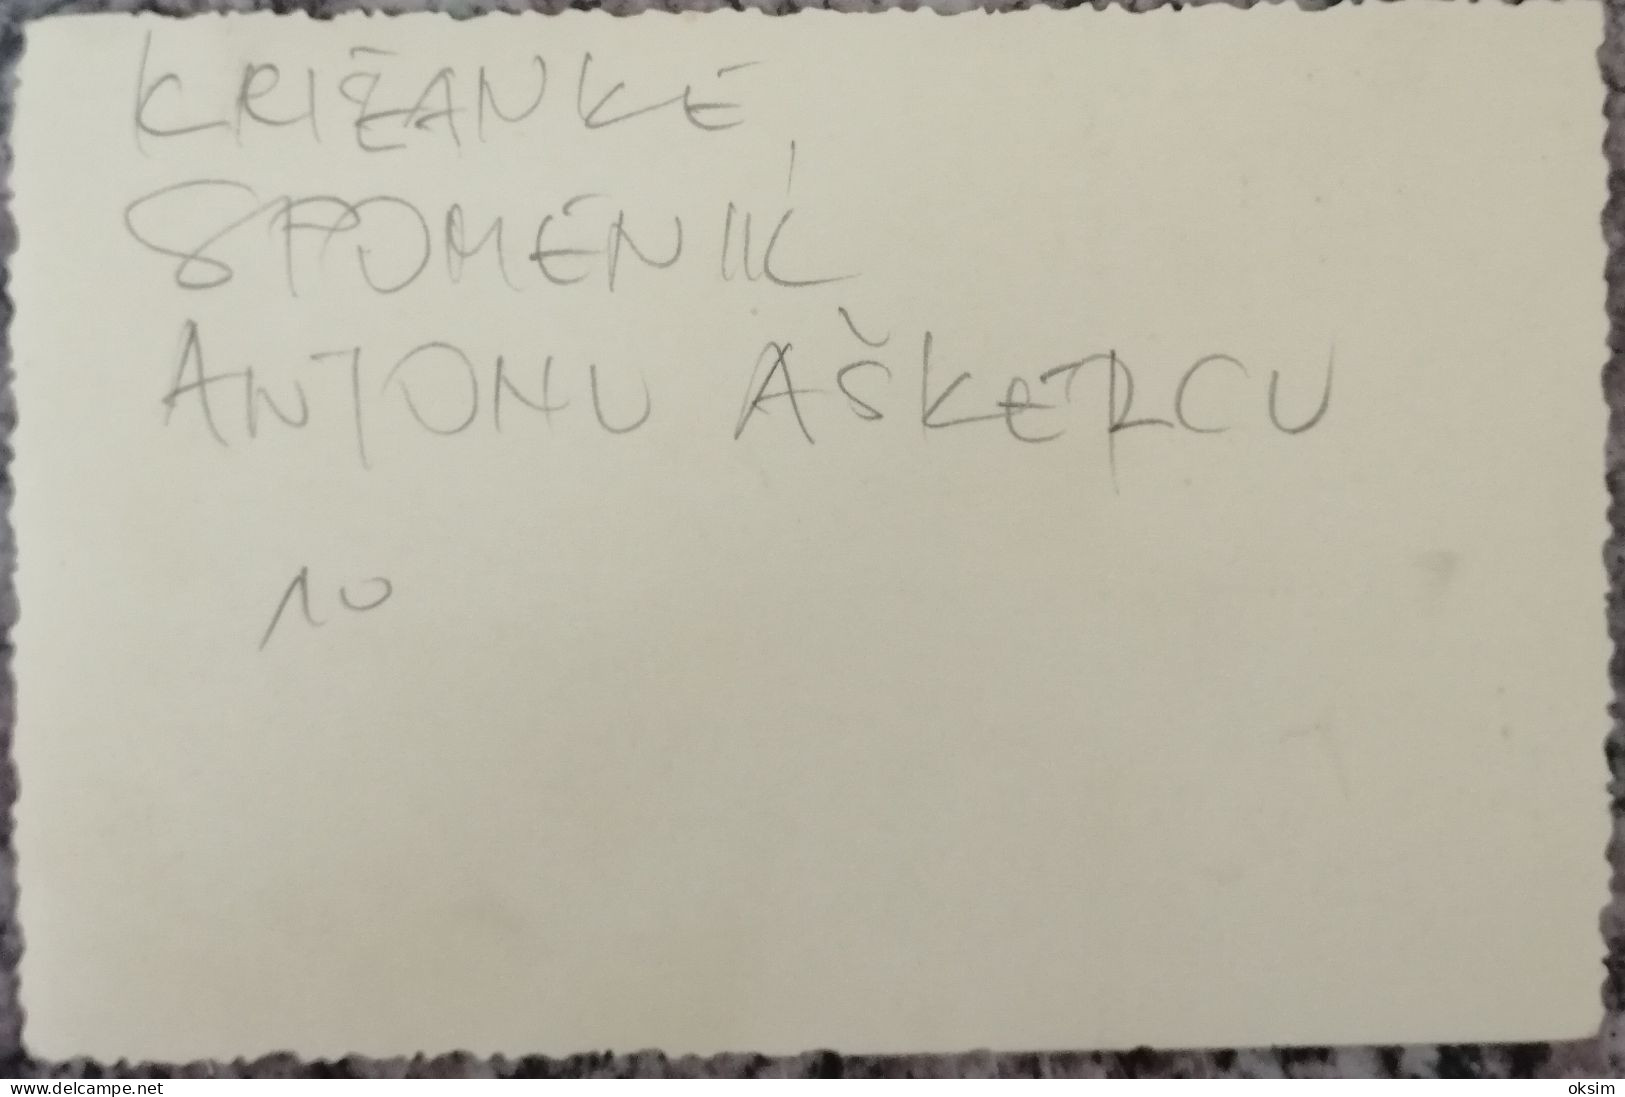 KRIŽANKE,
SPOMENIK
ANTONU AŠKERCU
10
www.delcampe.net
oksim